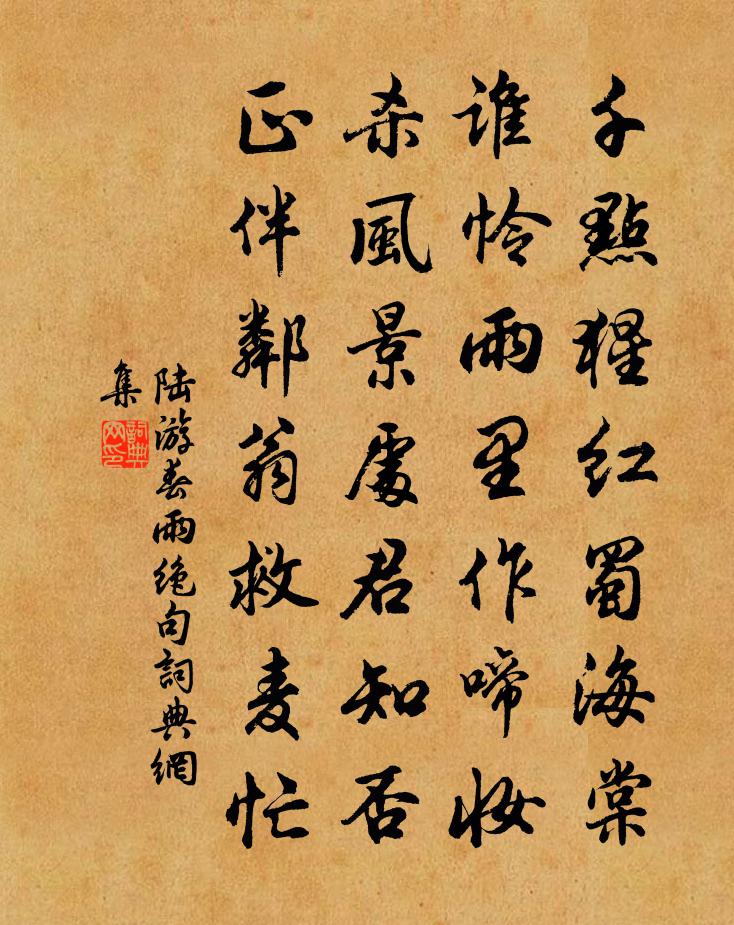 千點猩紅蜀海棠
谁怜雨里作啼妝
杀風景處君知否
正伴鄰翁救麦忙
陆游春雨绝句詞典網
集
詞典
网印